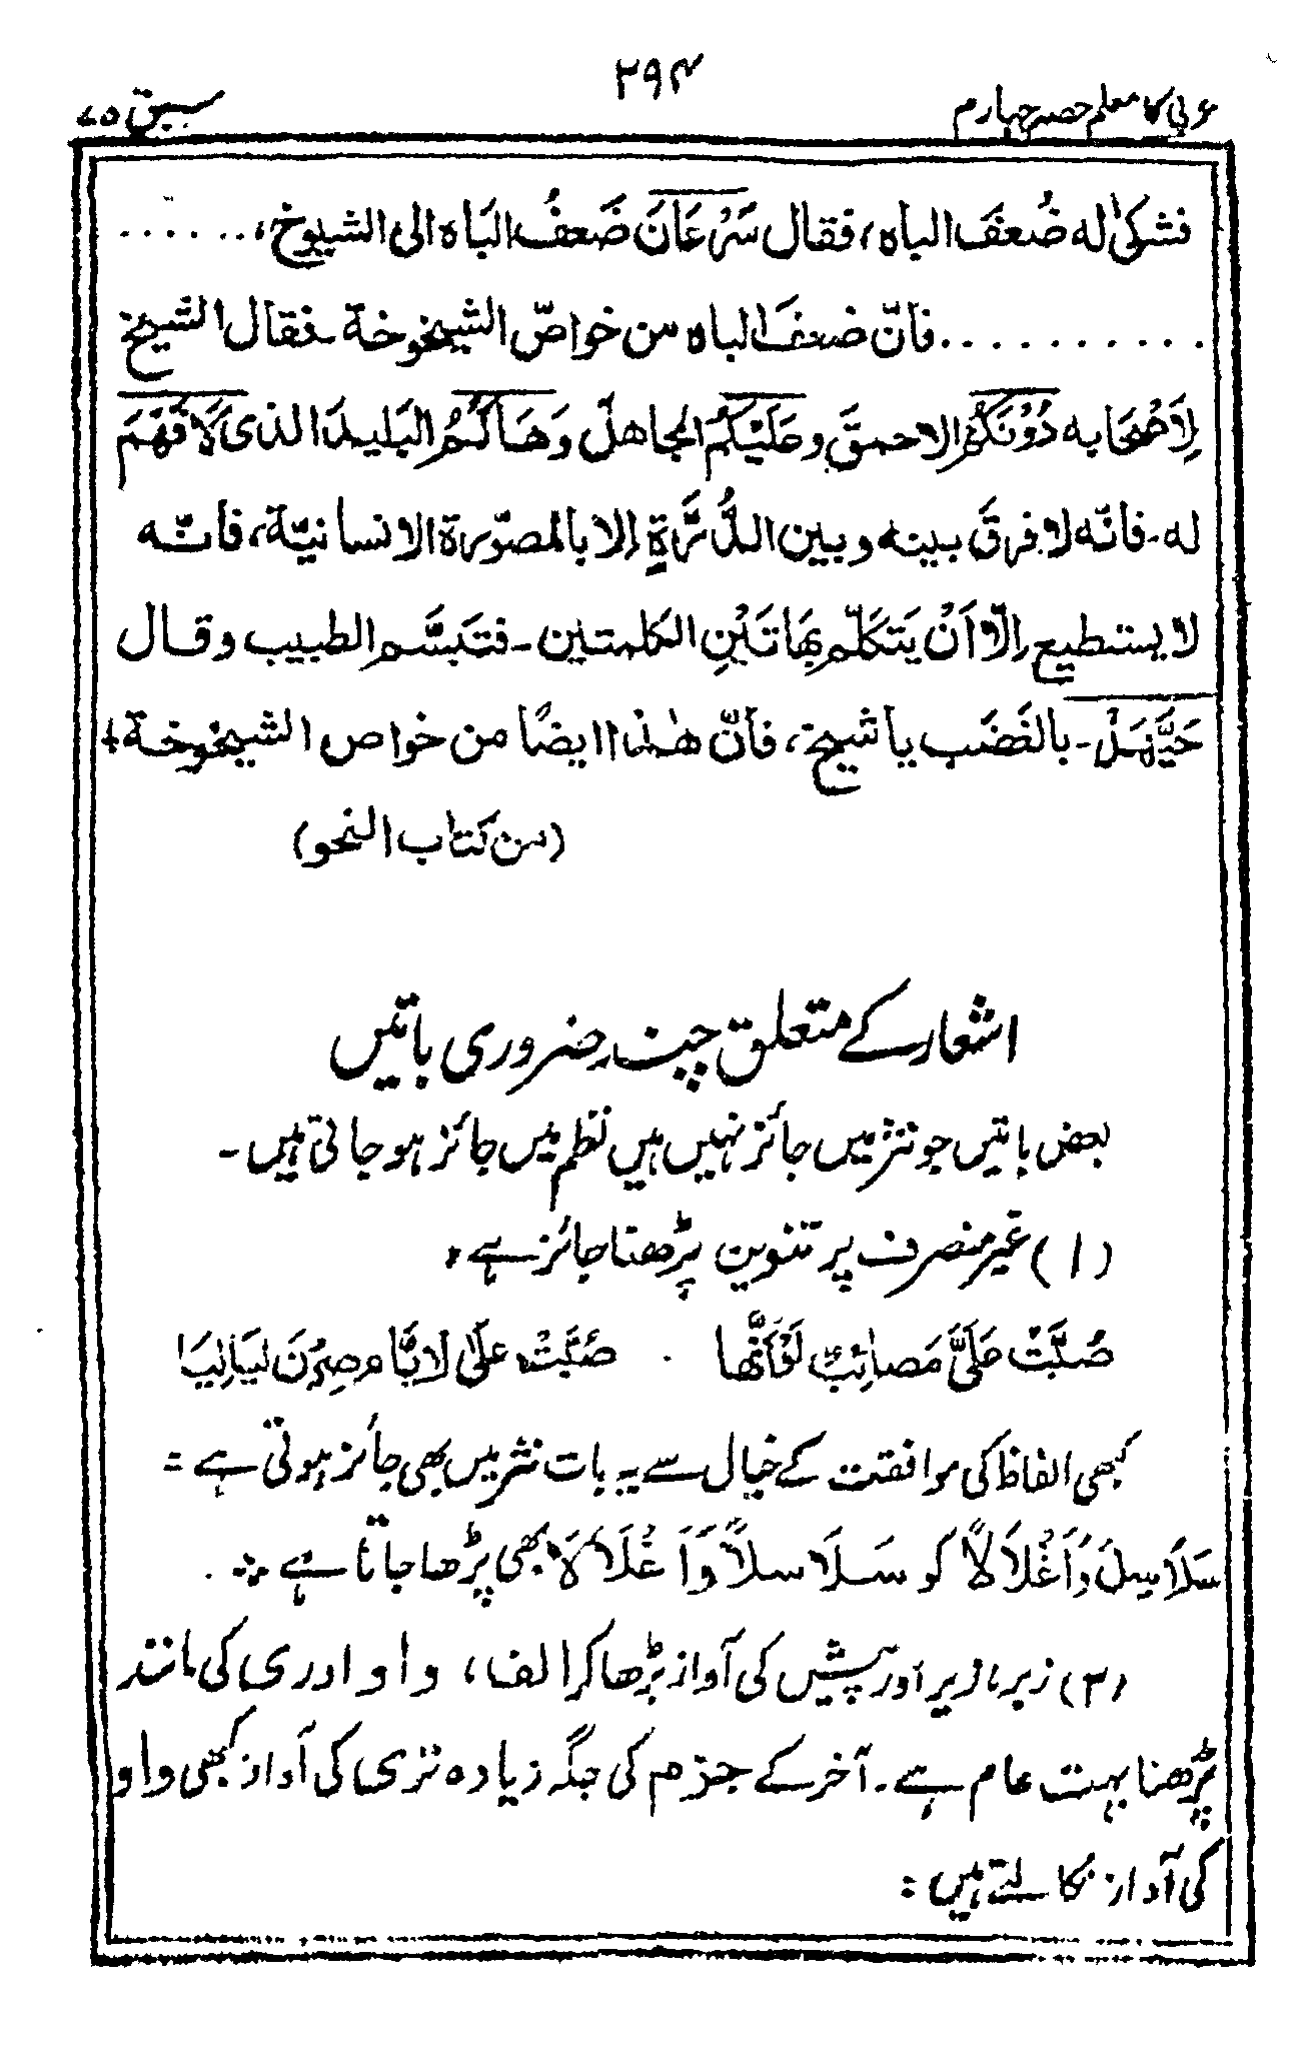 ۲۹۴
عربی کا معلم حصہ چہارم
سبق ۷۵
فشکیٰ له ضُعفَ الباه، فقال سَرْعَانَ ضَعفُ البَاه الی الشیوخ، ......
.......... فانّ ضعفَ الباه من خواصّ الشیخوخة۔ فقال الشیخ
لِاَصْحابه دُوْنَكُمُ الاحمقَ وعَلَیْكُمُ الجاهلَ وَهَاكُمُ البَلیدَ الذی لَا فَهْمَ
له۔ فانّه لا فرقَ بینه وبین الدُّرَّةِ إلا بالصوّرة الانسانیّة، فانّه
لا یستطیع اِلّا اَنْ یَتكَلّم بِهَاتَیْنِ الكلمتین۔ فتَبسَّم الطبیب وقال
حَیَّهَلْ۔ بالغَضَب یا شیخ، فانّ هٰذا ایضًا من خواص الشیخوخة +
(من كتاب النحو)
اشعار کے متعلق چند ضروری باتیں
بعض باتیں جو نثر میں جائز نہیں ہیں نظم میں جائز ہو جاتی ہیں۔
(۱) غیر منصرف پر تنوین پڑھنا جائز ہے،
صُبَّتْ عَلَیَّ مَصائِبٌ لَوْ اَنَّها . صُبَّتْ علَی لایَّامِ صِرْنَ لَیَالِیَا
کبھی الفاظ کی موافقت کے خیال سے یہ بات نثر میں بھی جائز ہوتی ہے =
سَلَاسِلَ وَاَغْلَالًا کو سَلَاسلاً وَاَغْلَالًا بھی پڑھا جاتا ہے ∴ .
(۲) زبر، زیر اور پیش کی آواز بڑھا کر الف، واو اور ی کی مانند
پڑھنا بہت عام ہے۔ آخر کے جزم کی جگہ زیادہ تر ی کی آواز کبھی واو
کی آواز نکالتے ہیں :